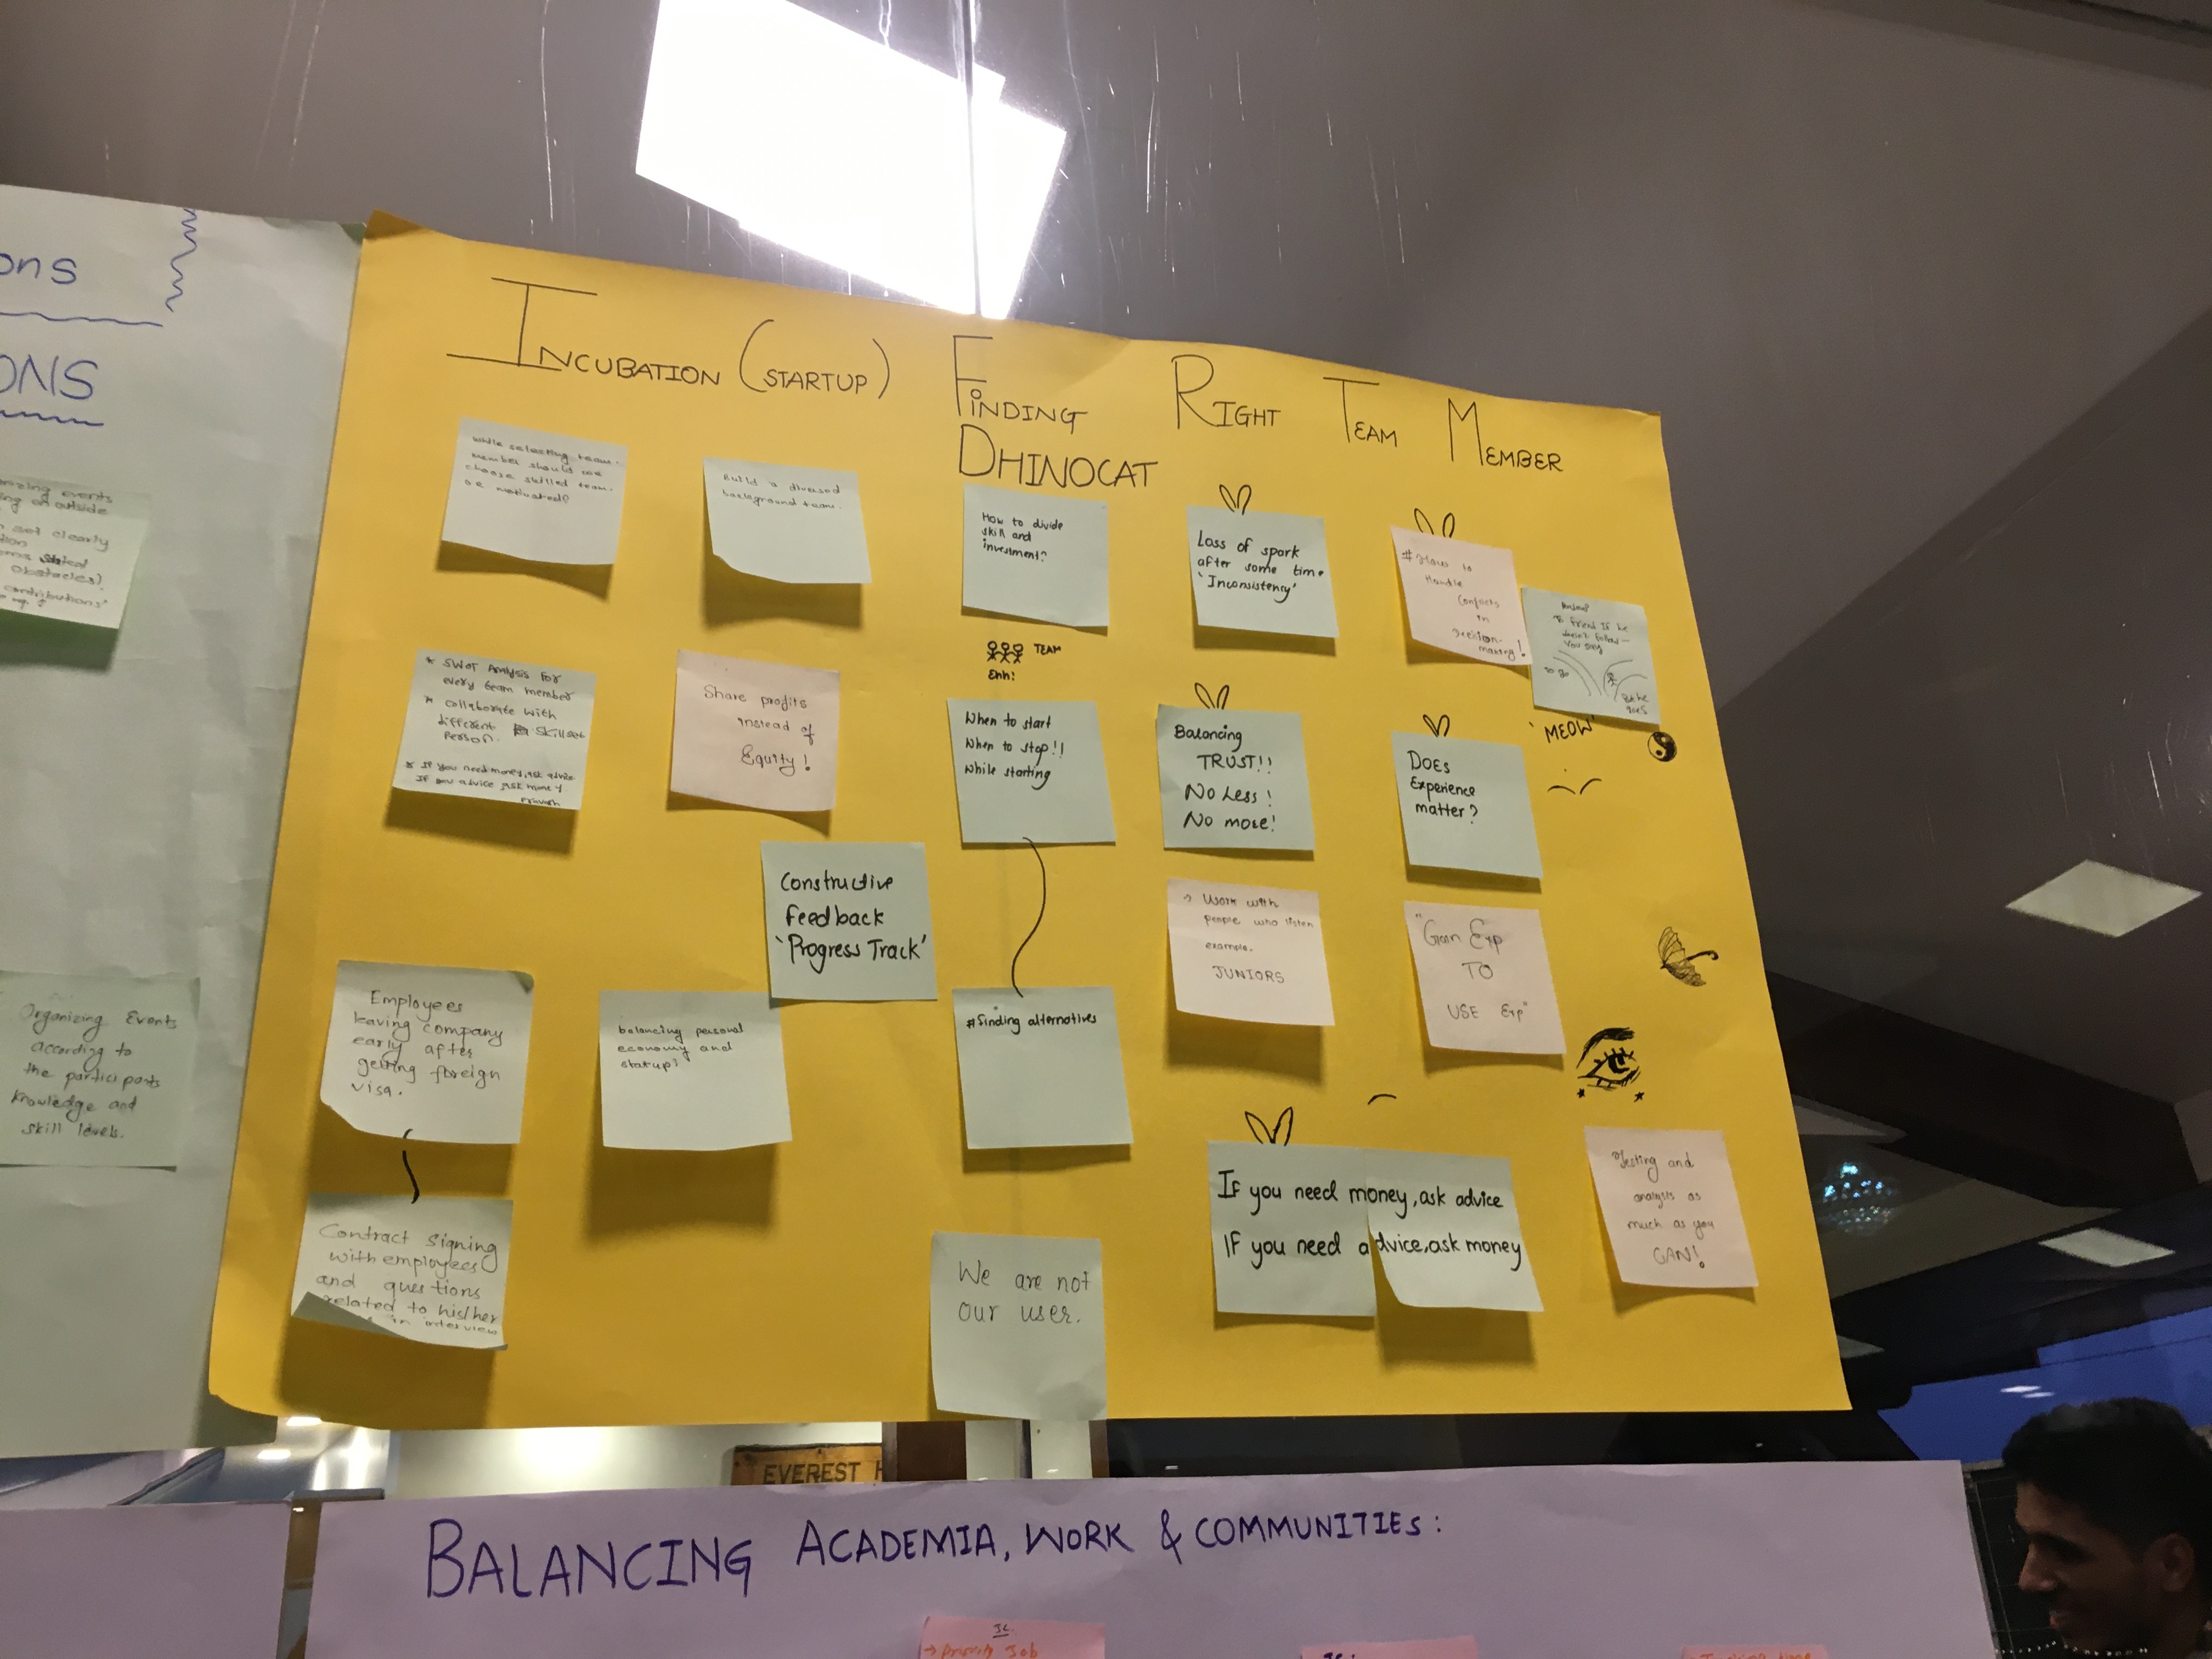 ons
ONS
nizing events
ing on outside
set clearly
tion
obstacles)
contributions'
Organizing Events
according to
the participants
knowledge and
skill levels.
INCUBATION (STARTUP) FINDING RIGHT TEAM MEMBER
DHINOCAT
While selecting team
member should we
choose skilled team
or motivated?
Build a diversed
background team.
How to divide
skill and
investment?
Loss of spark
after some time
'Inconsistency'
#How to
Handle
Conflicts
in
Decision-
making!
To friend If he
doesn't follow
you say
But he
goes
TEAM
Ehh!
* SWOT Analysis for
every team member
* collaborate with
different skillset
Person.
* If you need money, ask advice
If you advice ask money
Share profits
instead of
Equity!
When to start
When to stop!!
While starting
Balancing
TRUST!!
No Less!
No more!
Does
Experience
matter?
'MEOW'
Constructive
feedback
'Progress Track'
→ Work with
people who listen
example.
JUNIORS
"Gain Exp
TO
USE Exp"
Employees
leaving company
early after
getting foreign
visa.
balancing personal
economy and
startup?
#finding alternatives
Contract signing
with employees
and questions
related to his/her
in interview
We are not
our user.
If you need money, ask advice
IF you need advice, ask money
Testing and
analysis as
much as you
CAN!
EVEREST H
BALANCING ACADEMIA, WORK & COMMUNITIES:
→ Priority Job